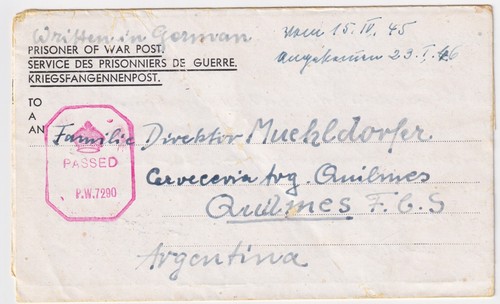 Written in German
vom 15. IV. 45
angekommen 23. I. 46
PRISONER OF WAR POST.
SERVICE DES PRISONNIERS DE GUERRE.
KRIEGSFANGENNENPOST.
TO
A
AN
Familie Direktor Muehldorfer.
PASSED
P.W.7290
Cerveceria Arg. Quilmes
Quilmes F.C.S
Argentina